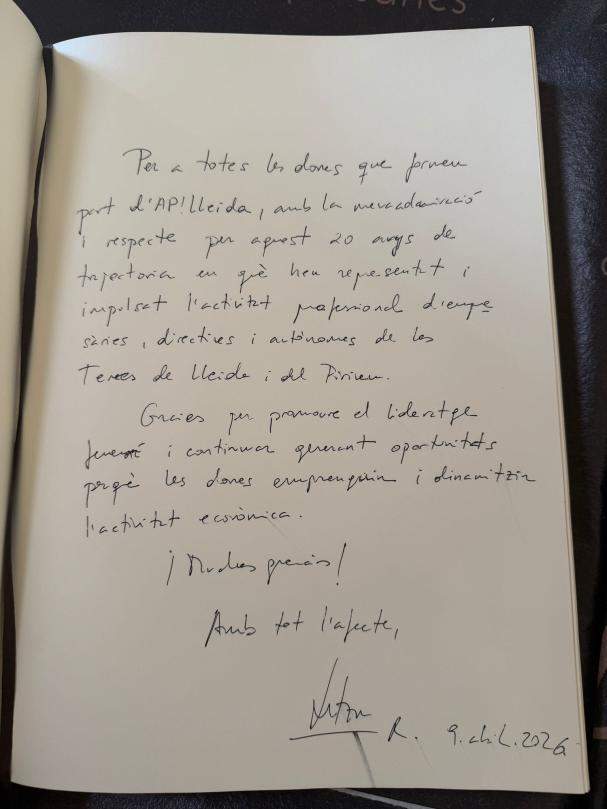 Per a totes les dones que formeu
part d'AP!Lleida, amb la meva admiració
i respecte per aquest 20 anys de
trajectòria en què heu representat i
impulsat l'activitat professional d'empre
sàries, directives i autònomes de les
Terres de Lleida i del Pirineu.
Gràcies per promoure el lideratge
femení i continuar generant oportunitats
perquè les dones emprenguin i dinamitzin
l'activitat econòmica.
¡Muchas gracias!
Amb tot l'afecte,
R. 9.abril.2026